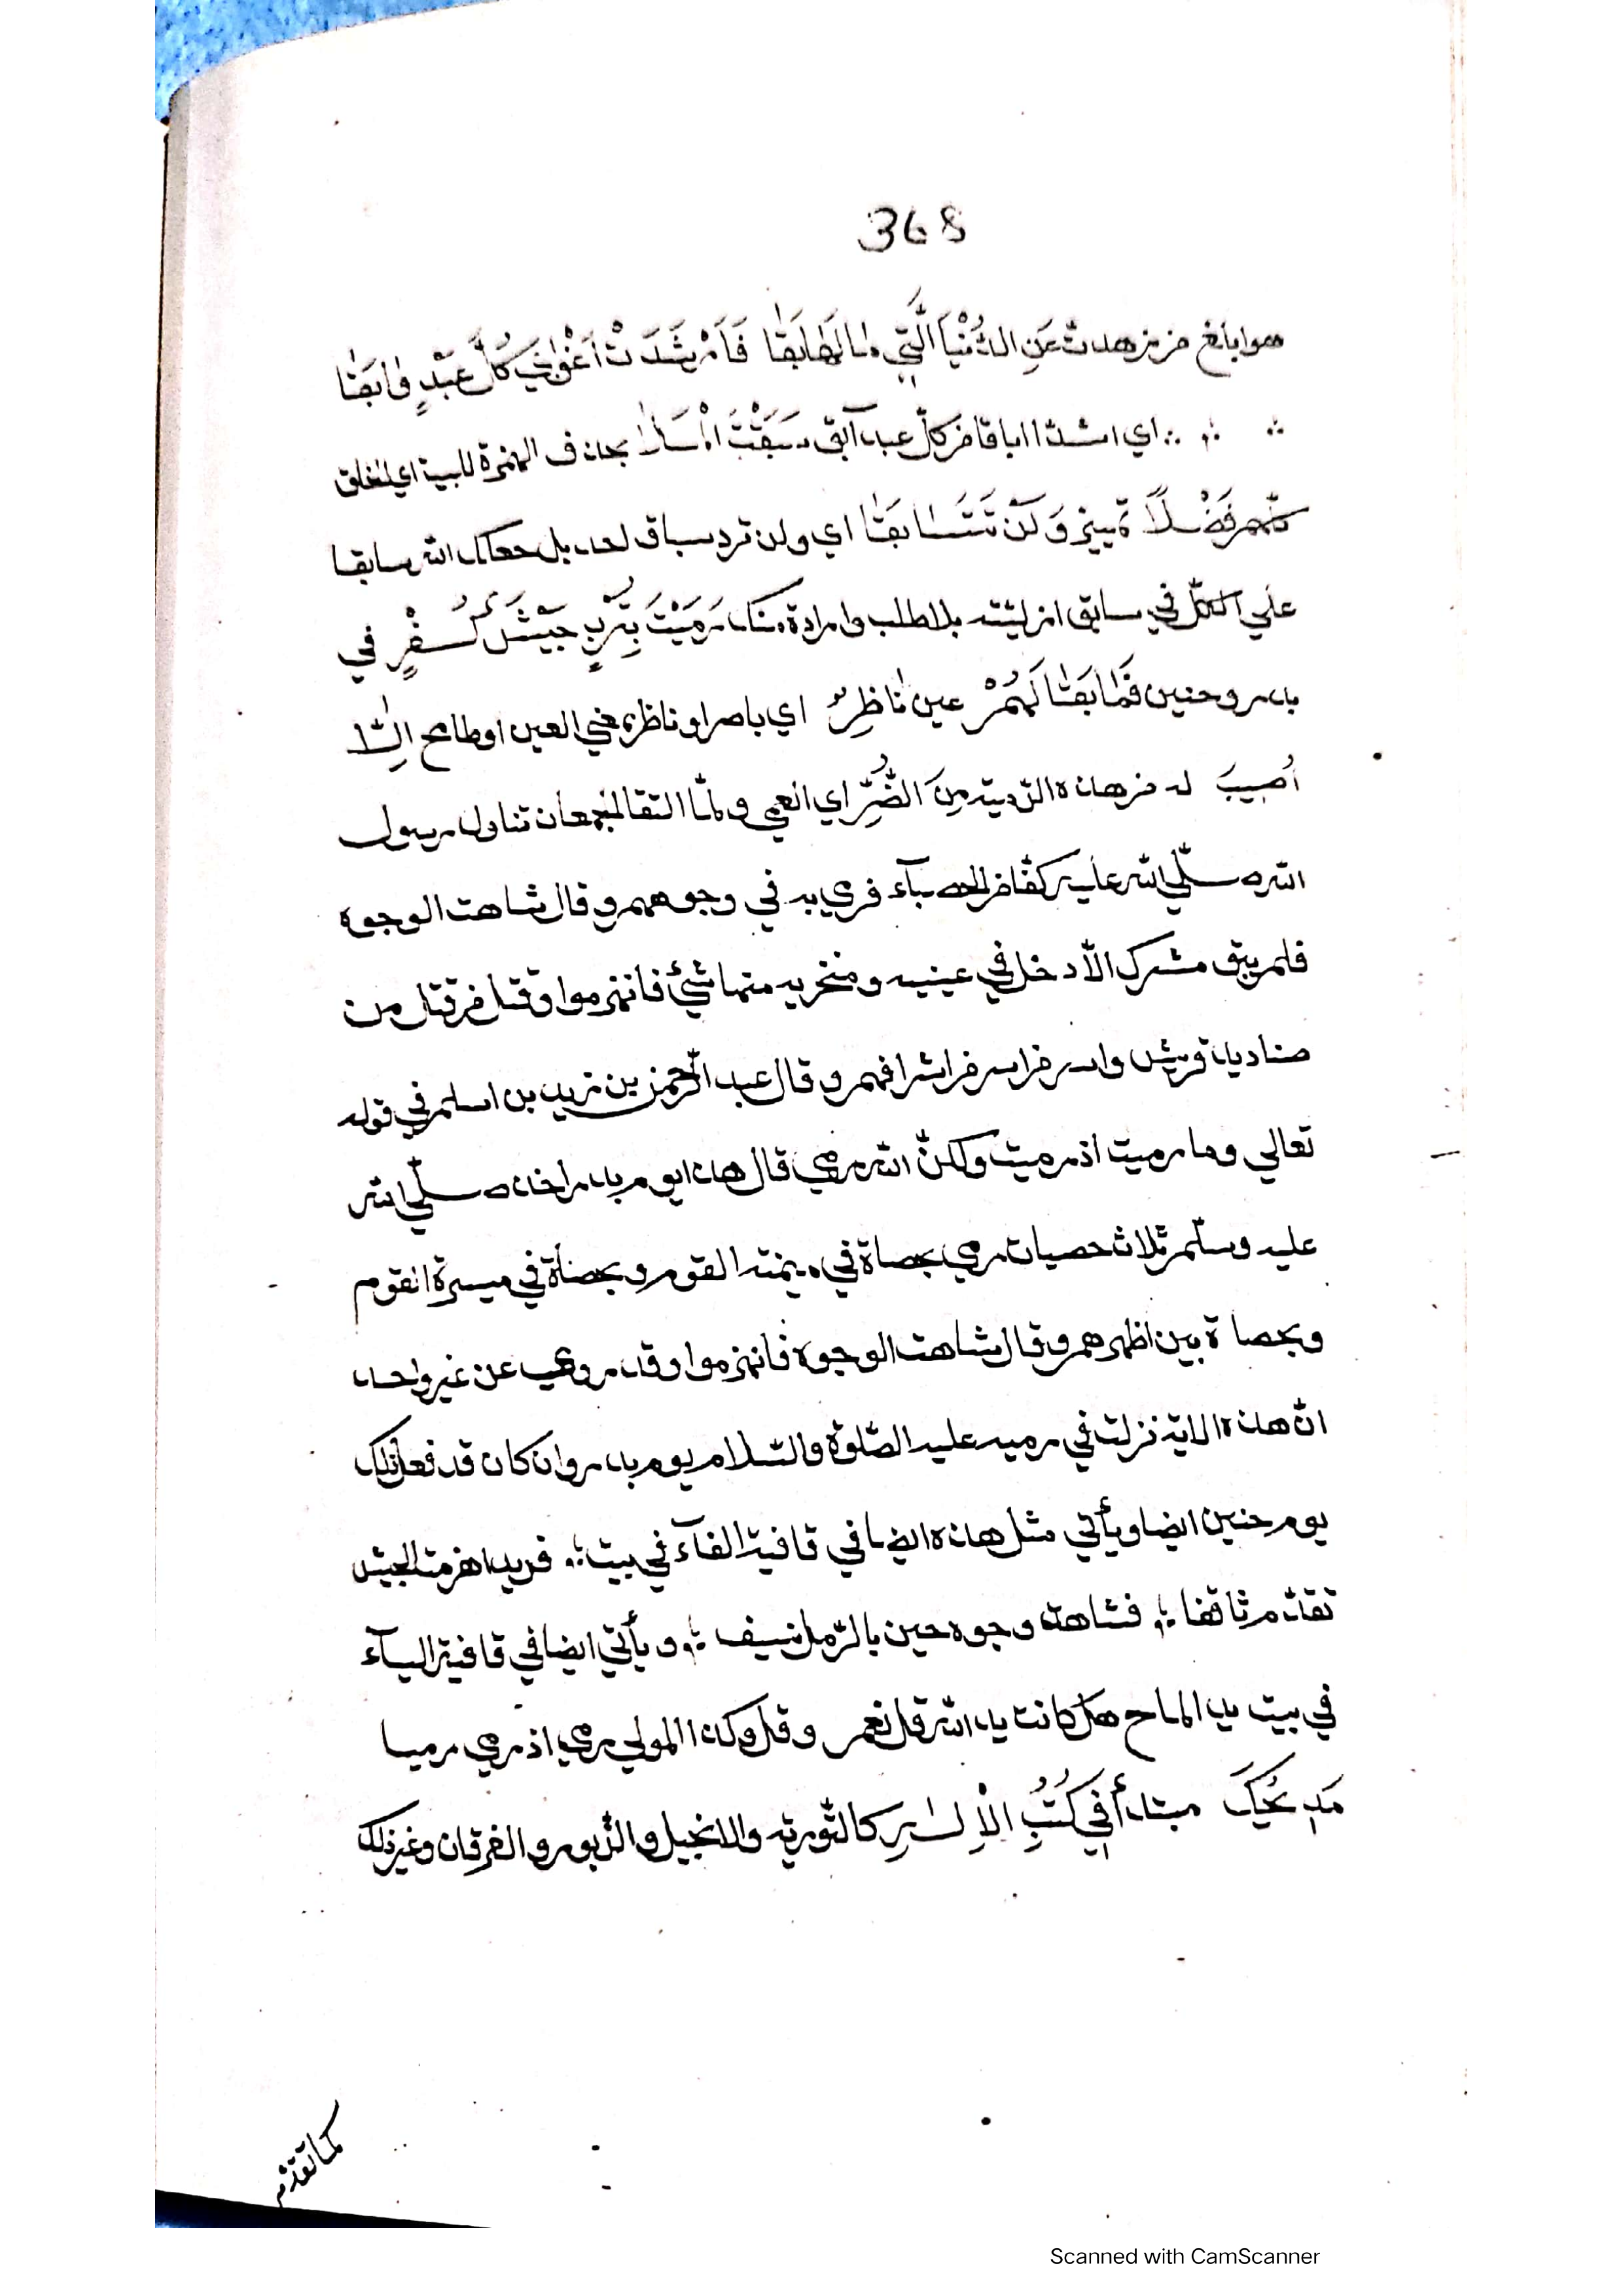 368
هو ابلغ من زهدت عَنِ الدُّنْيَا الَّتِي مَا لَهَا بَقَا فَاَرْشَدَتْ اَغْوٰي كُلَّ عَبْدٍ وَاٰبَقَا
∴ ∴ ∴ اي اشدّ اباقا من كلّ عبد آبق سَبَقْتَ الْمَلَا بحذف الهمزة للبيت اي الخلق
كلّهم فَضْلًا تمييز وَلَنْ تَتَسَابَقَا اي ولن ترد سباق احد بل جعلك الله سابقا
علي الكلّ في سابق ازليّته بلا طلب وارادة منك رَمَيْتَ بِتُرْبٍ جَيْشَ كُفْرٍ في
بدر وحنين فَمَا بَقَا لَهُمْ عين نَاظِرٌ اي باصر او ناظرة في العين او طامح اِلَّا
اُصِيبَ له من هذه الرّمية مِنَ الضُّرِّ اي العمي ولمّا التقا الجمعان تناول رسول
الله صلّي الله عليه كفّا من الحصبآء فرمي به في وجوههم وقال شاهت الوجوه
فلم يبق مشرك الّا دخل في عينيه ومنخريه منها شئ فانهزموا وقتل من قتل من
صناديد قريش واسر من اسر من اشرافهم وقال عبد الرّحمن بن زيد بن اسلم في قوله
تعالي وما رميت اذ رميت ولكنّ الله رمي قال هذا يوم بدر اخذ صلّي الله
عليه وسلّم ثلاث حصيات رمي بحصاة في ميمنة القوم وبحصاة في ميسرة القوم
وبحصاة بين اظهرهم وقال شاهت الوجوه فانهزموا وقد روي عن غير واحد
انّ هذه الاية نزلت في رميه عليه الصّلوة والسّلام يوم بدر وان كان قد فعل ذلك
يوم حنين ايضا ويأتي مثل هذه ايضا في قافية الفآء في بيت ∴ فريدا هزمت الجيش
تقدم ثاقفا ∴ فشاهت وجوه حين بالرّمل نسيف ∴ ويأتي ايضا في قافية اليآء
في بيت يد الماح هل كانت يد الله قل نعم وقل وكذا المولي رمي اذ رمي رميا
مَدِيحُكَ مبتدأ فِي كُتُبِ الْاِلٰهِ كالتّورية والانجيل والزّبور والفرقان وغير ذلك
كما تقدّم
Scanned with CamScanner